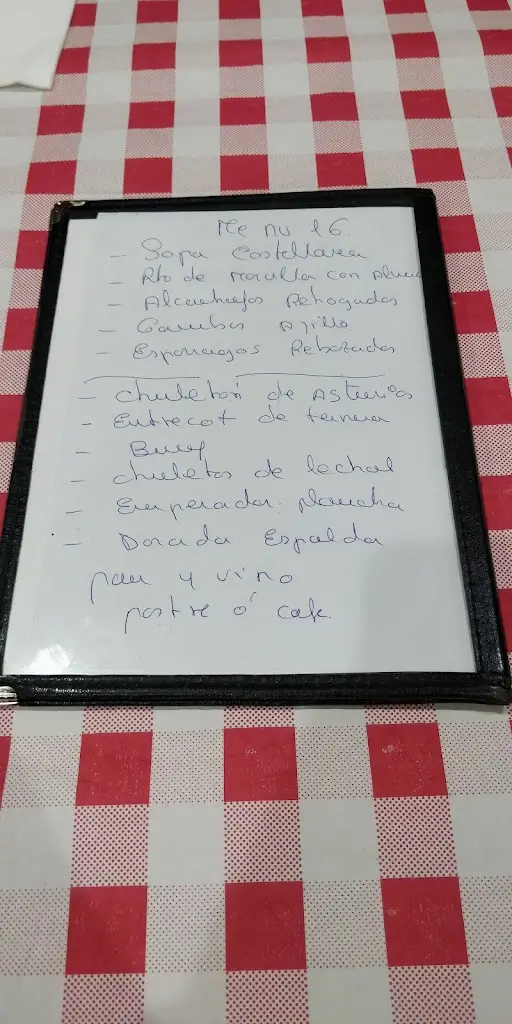 Menu 16.
- Sopa Castellana
- Rto de morcilla con
- Alcachofas Rehogadas
- Gambas Ajillo
- Esparragos Rebozados
- Chuletón de Asturias
- Entrecot de ternera
- chuletas de lechal
- Emperador plancha
- Dorada Espalda
pan y vino
postre ó cafe.